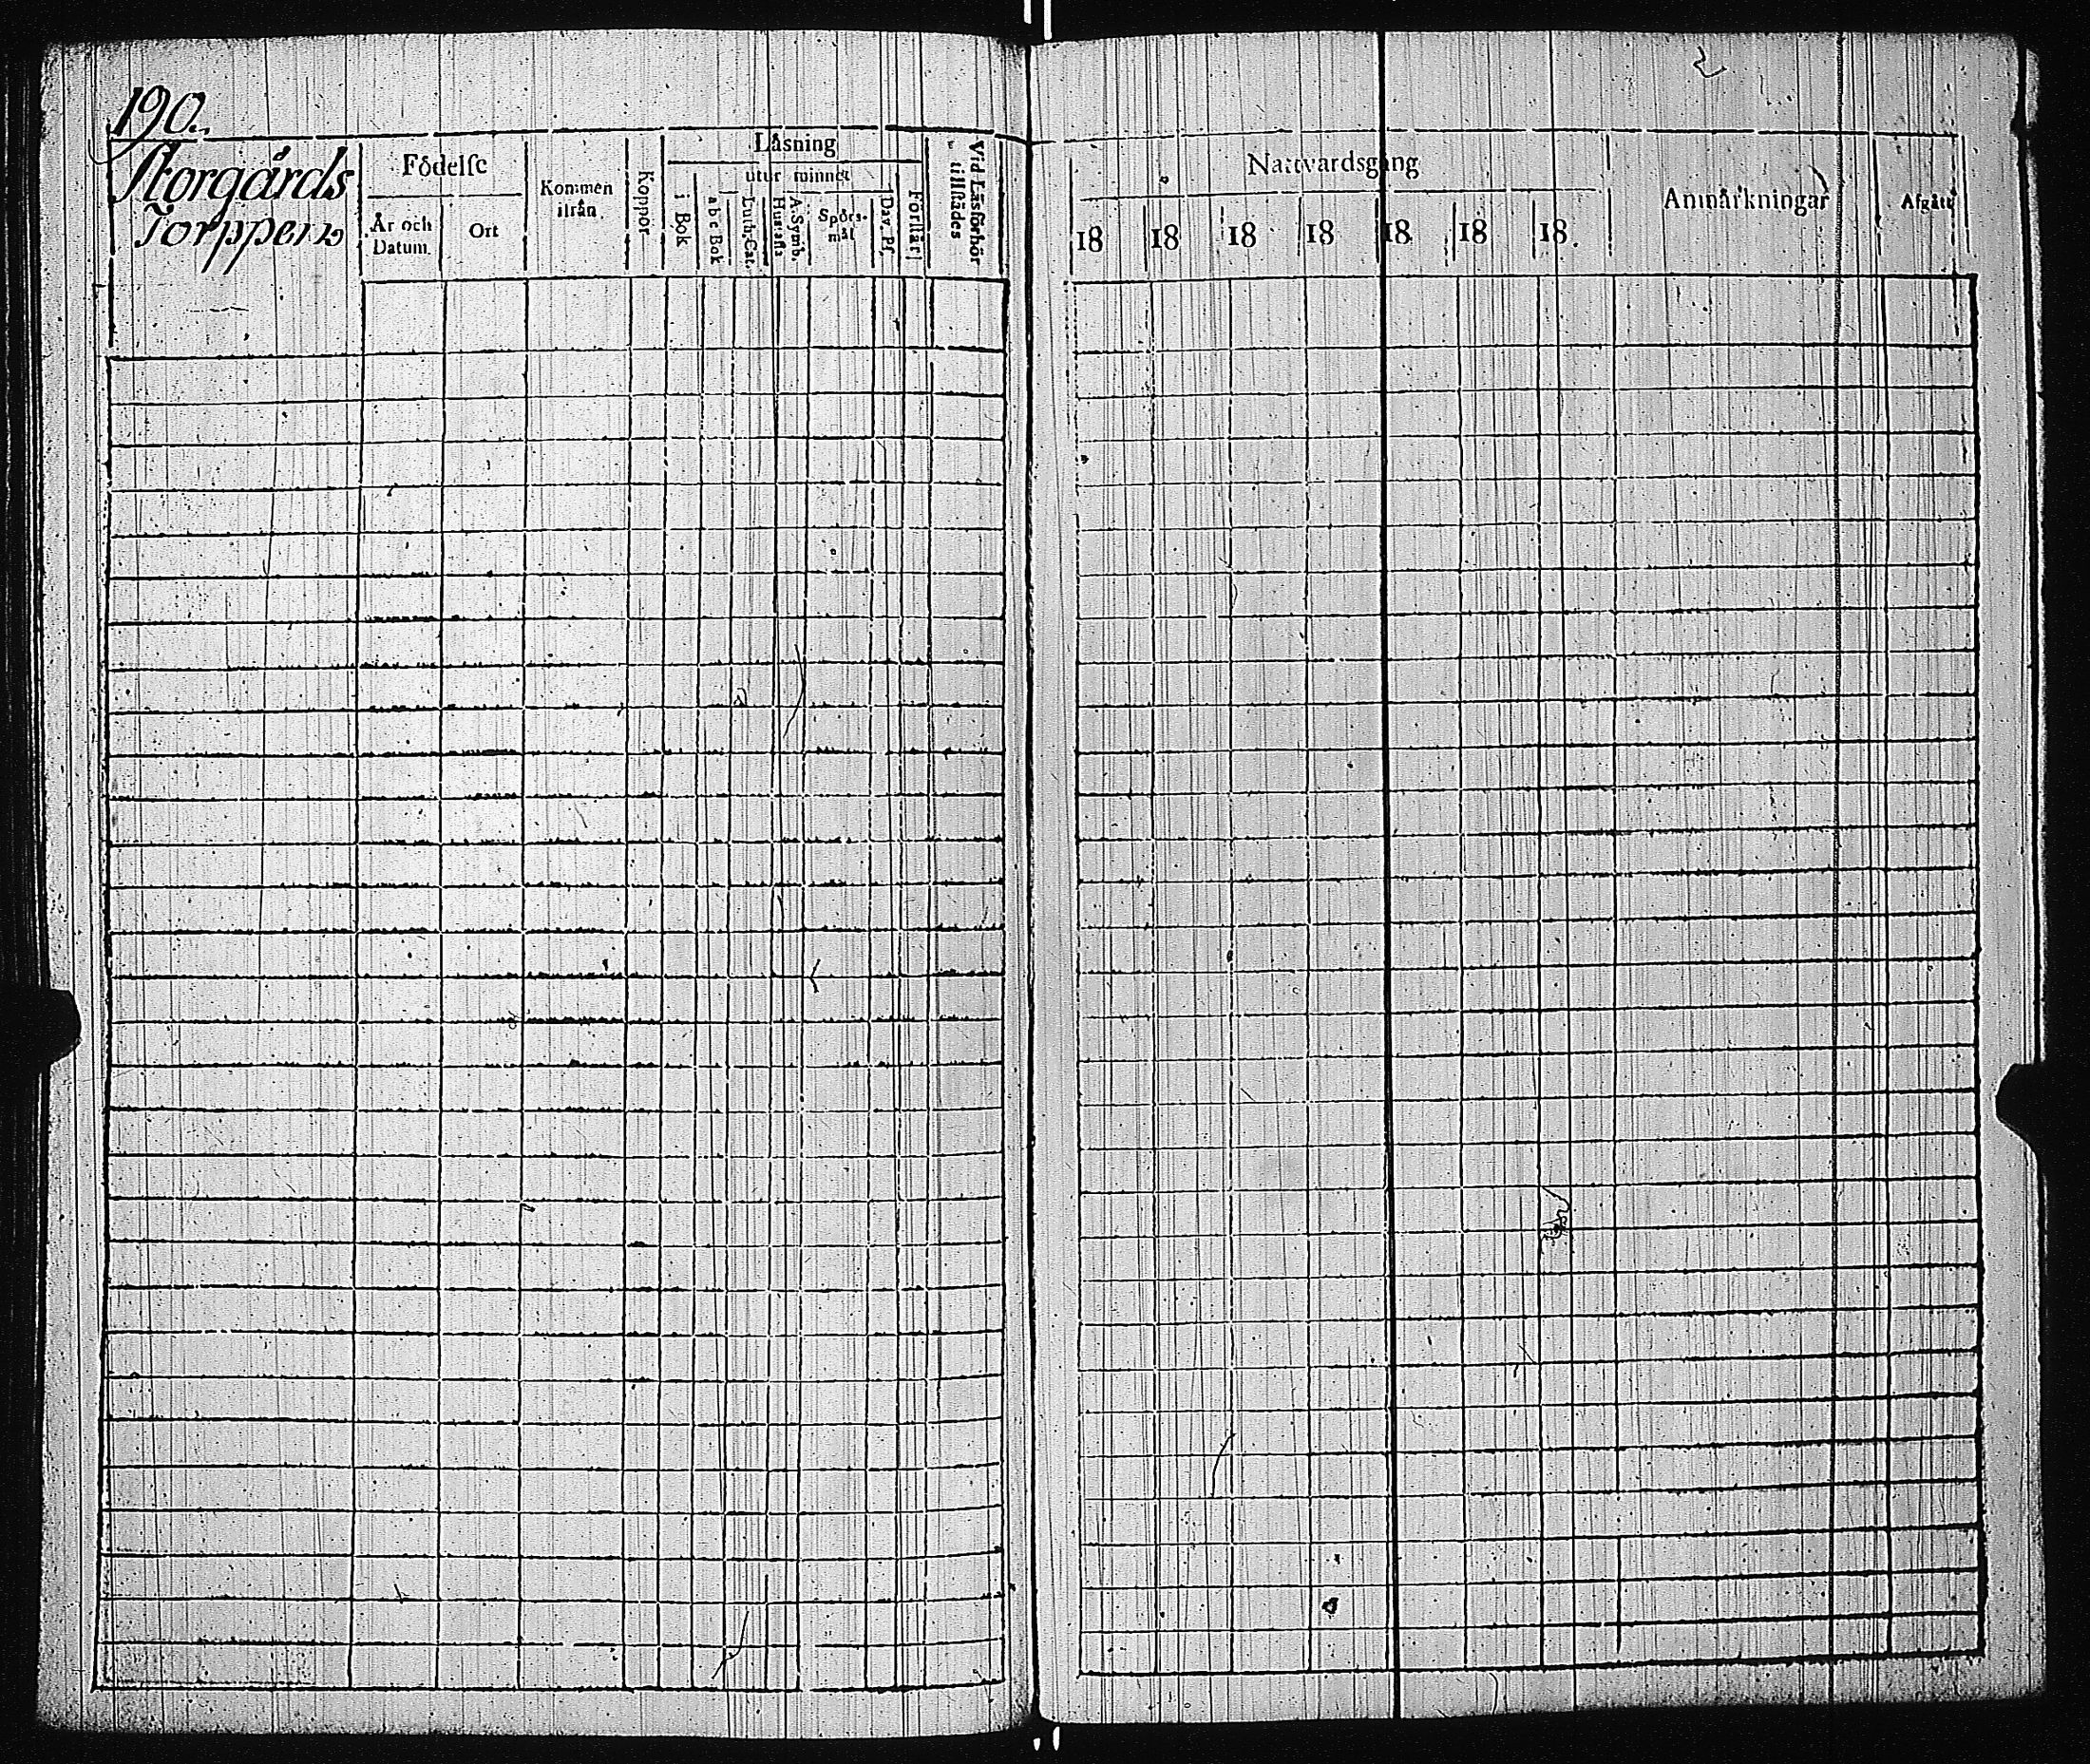 190.
Storgårds
Torppern
Födelse
År och Datum.
Ort
Kommen ifrån.
Koppor
Låsning
utur minnet
i Bok
abc Bok
Luth. Cat.
Hustafla
A. Symb.
Spörs-mål
Dav. Ps.
Förstår
Vid Läsförhör tillstådes
Nattvardsgång
18 18 18 18 18 18 18.
Anmärkningar
Afgått